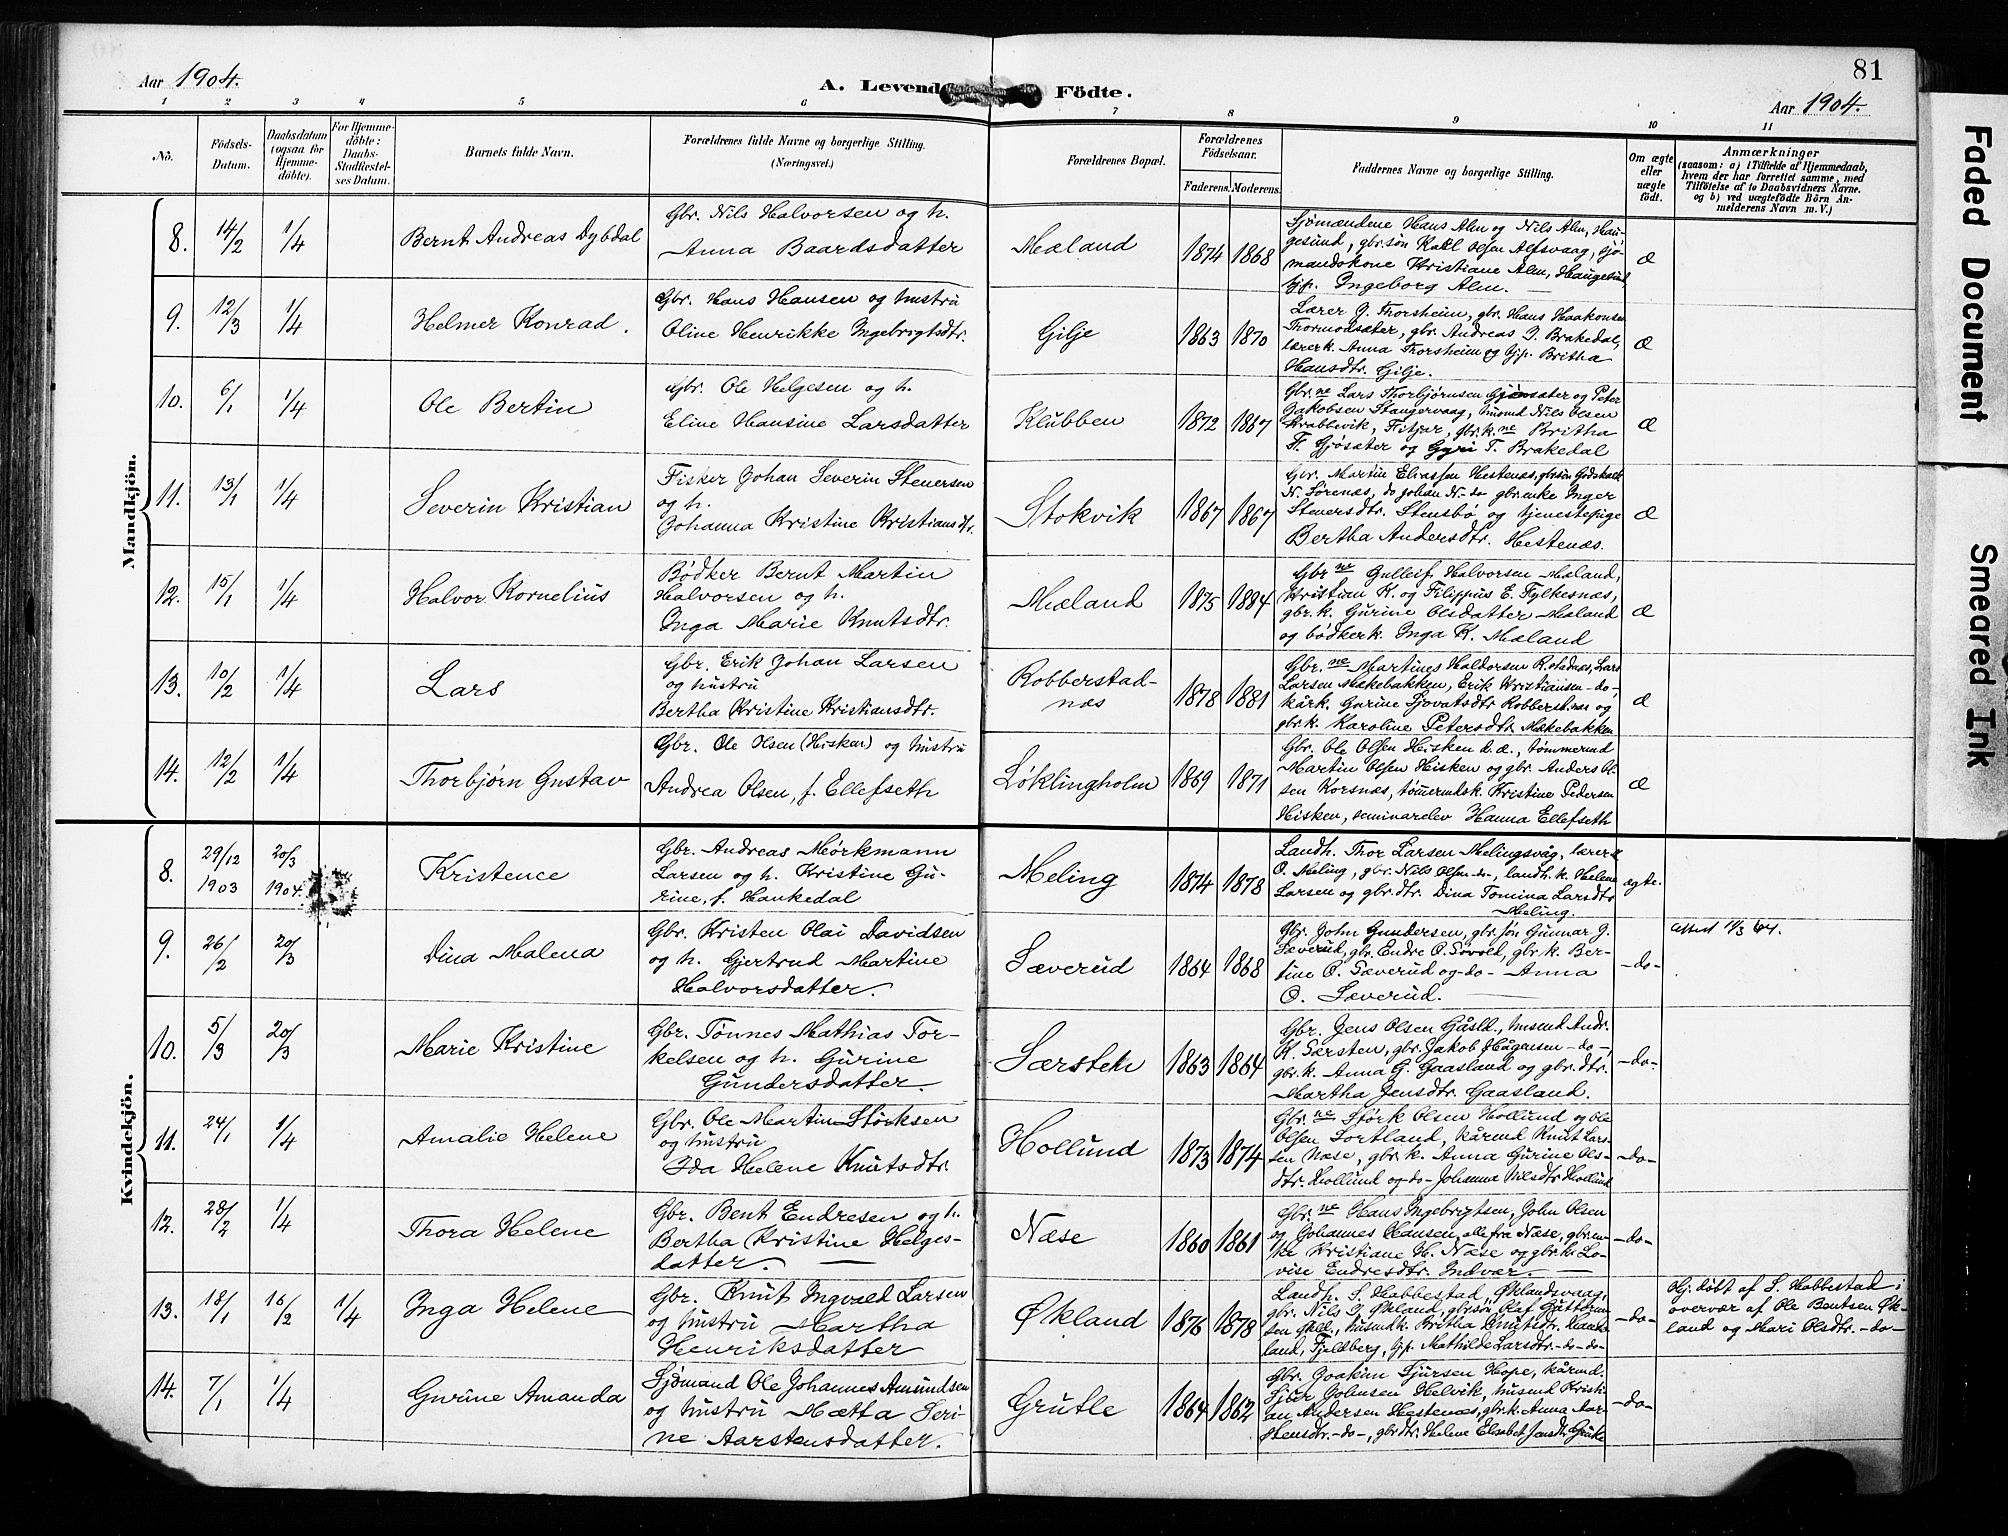 81
Aar 1904.
A. Levende Födte.
Aar 1904.
1 2 3 4 5 6 7 8 9 10 11
No.
Födsels-
Datum.
Daabsdatum
(ogsaa for
Hjemme-
döbte).
For Hjemme-
döbte:
Daabs-
Stadfæstel-
ses Datum.
Barnets fulde Navn.
Forældrenes fulde Navne og borgerlige Stilling.
(Næringsvei.)
Forældrenes Bopæl.
Forældrenes
Födselsaar.
Faderens. Moderens.
Faddernes Navne og borgerlige Stilling.
Om ægte
eller
uægte
födt.
Anmærkninger
(saasom: a) i Tilfælde af Hjemmedaab,
hvem der har forrettet samme, med
Tilföielse af to Daabsvidners Navne.
og b) ved uægtefödte Börn An-
melderens Navn m. V.)
Mandkjön.
8. 14/2 1/4 Bernt Andreas Dybdal
Gbr. Nils Halvorsen og h.
Anna Baardsdatter
Mæland 1874 1868
Sjømændene Hans Alm og Nils Alm, Hau-
gesund, gbr.søn Karl Olsen Alfsvaag, sjø-
mandskone Kristiane Alm, Haugesund
pp. Ingeborg Alm.
æ
9. 12/3 1/4 Helmer Konrad.
Gbr. Hans Hansen og hustru
Oline Henrikke Ingebrigtsdtr.
Gilje 1863 1870
Lærer J. Thorsheim, gbr. Hans Haakonsen
Thormodsæter, gbr. Andreas J. Brakedal,
lærerk. Anna Thorsheim og pp. Britha
Hansdtr. Gilje.
æ
10. 6/1 1/4 Ole Bertin
Gbr. Ole Helgesen og h.
Eline Hansine Larsdatter
Klubben 1872 1867
Gbr.ne Lars Thorbjørnsen Gjøsæter og Peter
Jakobsen Stangervaag, husmd Nils Olsen
Krabbevik, Fitjar, gbr.k.ne Britha
Fr. Gjøsæter og Gyri T. Brakedal
æ
11. 13/1 1/4 Severin Kristian
Fisker Johan Severin Stenersen
og h.
Johanna Kristine Kristiansdtr.
Stokvik 1867 1867
Gbr. Martin Eliassen Hestenæs, gbrsøn Godskalk
N. Sørenæs, do Johan N. -do gbr.enke Inger
Stenersdtr. Stensbø og tjenestepige
Bertha Andersdtr. Hestenæs.
æ
12. 15/1 1/4 Halvor Kornelius
Bødker Bernt Martin
Halvorsen og h.
Inga Marie Knutsdtr.
Mæland 1875 1884
Gbr ne Gulleif Halvorsen Mæland,
Kristian K. og Filippus E. Fylkesnæs,
gbr.k. Gurine Olsdatter Mæland
og bødkerk. Inga K. Mæland
æ
13. 10/2 1/4 Lars
Gbr. Erik Johan Larsen
og hustru
Bertha Kristine Kristiansdtr.
Robberstad-
næs 1878 1881
Gbr. ne Martines Haldorsen R.stadnæs, Lars
Larsen Mækebakken, Erik Kristiansen -do-,
kårk. Gurine Sjovatsdtr Robberst.næs og
gbr.k. Karoline Petersdtr. Mækebakken
æ
14. 12/2 1/4 Thorbjørn Gustav
Gbr. Ole Olsen (Hisken) og hustru
Andrea Olsen, f. Ellefseth
Løklingholm 1869 1871
Gbr. Ole Olsen Hisken d.æ., tømmermd
Martin Olsen Hisken og gbr. Anders Ol-
sen Korsnæs, tømmermdsk. Kristine Pedersen
Hisken, seminarelev Hanna Ellefseth
æ
Kvindekjön.
8. 29/12 1903 20/3 1904. Kristence
Gbr. Andreas Mørkmann
Larsen og h. Kristine Gu-
rine, f. Haukedal
Meling 1874 1878
Landh. Thor Larsen Melingsvåg, lærer
O. Meling, gbr. Nils Olsen -do-, landh.k. Helene
Larsen og gbr.dtr. Dina Tomina Larsdtr
Meling.
ægte.
9. 26/2 20/3 Dina Malena
Gbr. Kristen Olai Davidsen
og h. Gjertrud Martine
Halvorsdatter.
Sæverud 1864 1868
Gbr. John Gundersen, gbr.søn Gunnar J.
Sæverud, gbr. Endre O. Sovold, gbr.k. Ber-
tine O. Sæverud og -do- Anna
O. Sæverud.
-do-
Attest 11/3 64.
10. 5/3 20/3 Marie Kristine
Gbr. Tønnes Mathias Tor-
kelsen og h. Gurine
Gundersdatter.
Særsten 1863 1864
Gbr. Jens Olsen Gåsld., husmd Andr.
K. Særsten, gbr. Jakob Hågensen -do-,
gbr.k. Anna G. Gaasland og gbr.dtr.
Martha Jensdtr. Gaasland.
-do-
11. 24/1 1/4 Amalie Helene
Gbr. Ole Martin Størksen
og hustru
Ida Helene Knutsdtr.
Hollund 1873 1874
Gbr. ne Størk Olsen Hollund og Ole
Olsen Sortland, kårmd Knut Lars-
sen Næse, gbr.k. Anna Gurine Ols-
dtr. Hollund og -do- Johanna Nilsdtr Hollund
-do-
12. 28/2 1/4 Thora Helene
Gbr. Bent Endresen og h.
Bertha Kristine Helges-
datter.
Næse 1860 1861
Gbr. ne Hans Ingebrigtsen, John Olsen
og Johannes Hansen, alle fra Næse, gbr.en-
ke Kristiane H. Næse og gbr.k. Lo-
vise Endresdtr. Indvær.
-do-
13. 18/1 16/2 1/4 Inga Helene
Gbr. Knut Ingvald Larsen
og hustru Martha
Henriksdatter
Økland 1876 1878
Landh. S. Habbestad, Øklandsvaag,
gbr. Nils J. Økland, gbr.søn Olaf Guttorm-
sen Økld., husmdk. Britha Knutsdtr. Hauke-
land, Fjeldberg, pp. Mathilde Larsdtr. -do-do-
-do-
Hj. døbt af S. Habbestad i
overvær af Ole Bentsen Øk-
land og Mari Olsdtr. -do-
14. 7/1 1/4 Gurine Amanda
Sjømand Ole Johannes Amundsen
og hustru Mætta Seri-
ne Aarstensdatter.
Grutle 1864 1862
Gbr. Joakim Sjursen Hope, kårmd.
Sjur Johnsen Helvik, husmd Kristi-
an Andersen Hestenæs, gbr.k. Anna Aar-
stensdtr. -do-, gbr.dtr. Helene Elisabet Jensdtr. Grutle
-do-
Faded Document
Smeared Ink